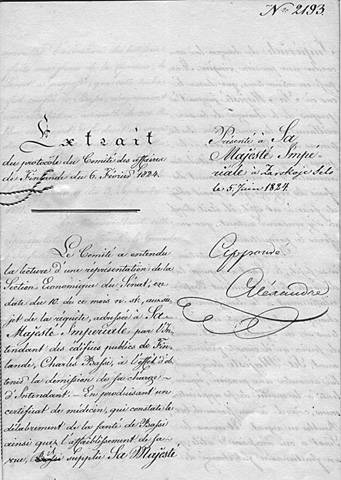 No. 2193.
Extrait
du protocôle du Comité des affaires
de Finlande du 6. Février 1824.
Présenté à Sa
Majesté Impé
riale à Zarskoje Selo
le 5 Juin 1824.
Le Comité a entendu
la lecture d'une représentation de la
Section Economique du Sénat, en
date du 10. de ce mois n. st., au su-
jet de la requête, adressée à Sa
Majesté Impériale par l'In-
tendant des édifices publics de Fin-
lande, Charles Bassi, à l'effet d'ob-
tenir la démission de sa charge
d'Intendant. – En produisant un
certificat de médecin, qui constate le
délabrement de la santé de Bassi
ainsi que l'affaiblissement de sa
vue, supplie Sa Majesté
Approuvé.
Alexandre